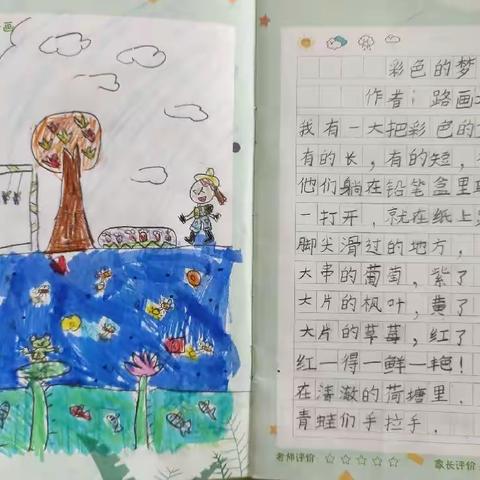 画
彩色的梦
作者：路画
我有一大把彩色的
有的长，有的短，
他们躺在铅笔盒里
一打开，就在纸上
脚尖滑过的地方，
大串的葡萄，紫了
大片的枫叶，黄了
大片的草莓，红了
红一得一鲜一艳！
在清澈的荷塘里.
青蛙们手拉手.
老师评价：☆☆☆☆☆
家长评价：